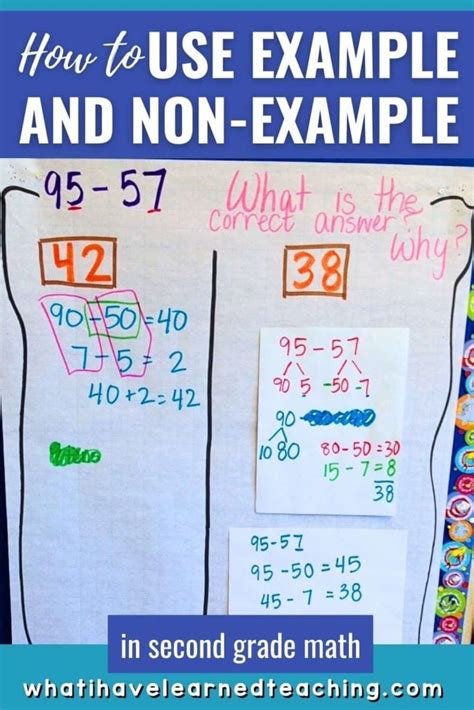 How to USE EXAMPLE
AND NON-EXAMPLE
95-57
What is the
correct answer?
Why?
42
90-50=40
7-5=2
40+2=42
38
95-57
90 5 -50 -7
90-
10 80
80-50=30
15-7=8
38
95-57
95-50=45
45-7=38
in second grade math
whatihavelearnedteaching.com